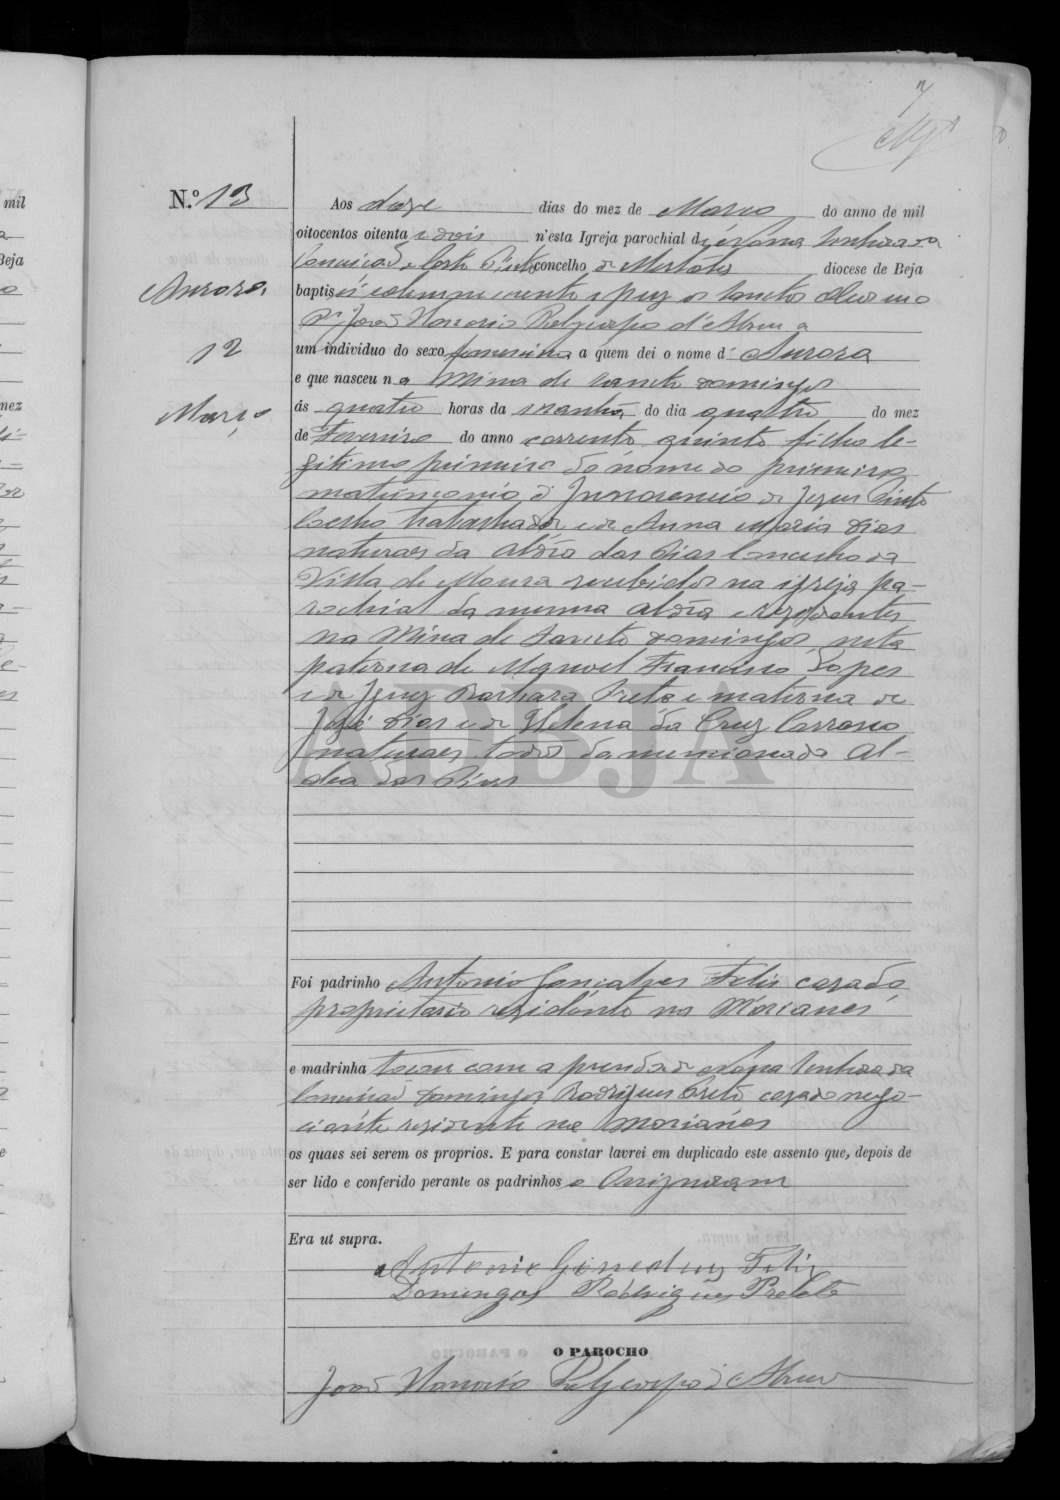 7
mil
Beja
mez
N.º 13
Aurora
12
Março
Aos doze dias do mez de Março do anno de mil
oitocentos oitenta e dois n'esta Igreja parochial de Nossa Senhora da
Conceicaõ concelho de Mertola diocese de Beja
baptisei solemnemente e puz os Sanctos Oleos
João Honorio Policarpo d'Abreu a
um individuo do sexo femenino a quem dei o nome d' Aurora
e que nasceu na Mina de Sancto Domingos
ás quatro horas da manhã do dia quatro do mez
de Fevereiro do anno corrente, quinto filho le-
gitimo primeiro do nome do primeiro
matrimonio d' Innocencio de Jezus Pinto
Coelho trabalhador e de Anna Maria Dias
naturaes da Aldêa dos Pias Concelho da
Villa de Moura recebidos na igreja pa-
rochial da mesma Aldêa e rezidentes
na Mina de Sancto Domingos, neta
paterna de Manoel Francisco Lopes
e de Jezuz Barbara Preta e materna de
José Dias e de Helena da Cruz Carrasco
naturaes todos da mencionada Al-
dea das Pias
ADBJA
Foi padrinho Antonio Gonçalves Felis cazado
proprietario rezidente no Môcanes
e madrinha tocou com a prenda de Nossa Senhora da
Conceicaõ Domingos Rodrigues Preto cazado nego-
ciante rezidente na Morianes
os quaes sei serem os proprios. E para constar lavrei em duplicado este assento que, depois de
ser lido e conferido perante os padrinhos e assignaram
Era ut supra.
Antonio Goncalves Felis
Domingos Rodrigues
O PAROCHO
João Honorio Policarpo d'Abreu